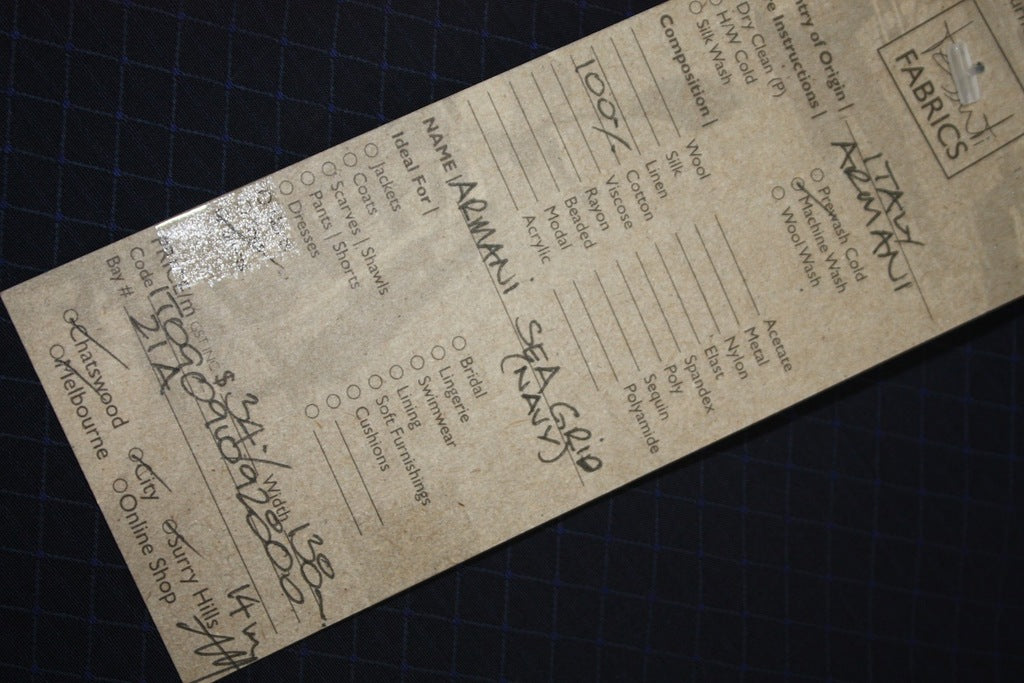 FABRICS
ntry of Origin | ITALY
ARMANI
e Instructions |
Dry Clean (P)
H/W Cold
Silk Wash
Prewash Cold
Machine Wash
Wool Wash
Composition |
Wool
Silk
Linen
100% Cotton
Viscose
Rayon
Beaded
Modal
Acrylic
Acetate
Metal
Nylon
Elast
Spandex
Poly
Sequin
Polyamide
NAME | ARMANI SEA GRID
(NAVY)
Ideal For |
Jackets
Coats
Scarves | Shawls
Pants | Shorts
Dresses
Bridal
Lingerie
Swimwear
Lining
Soft Furnishings
Cushions
Width 130
Code |
Bay # 21A
14 m
Chatswood
City
Surry Hills
Melbourne
Online Shop